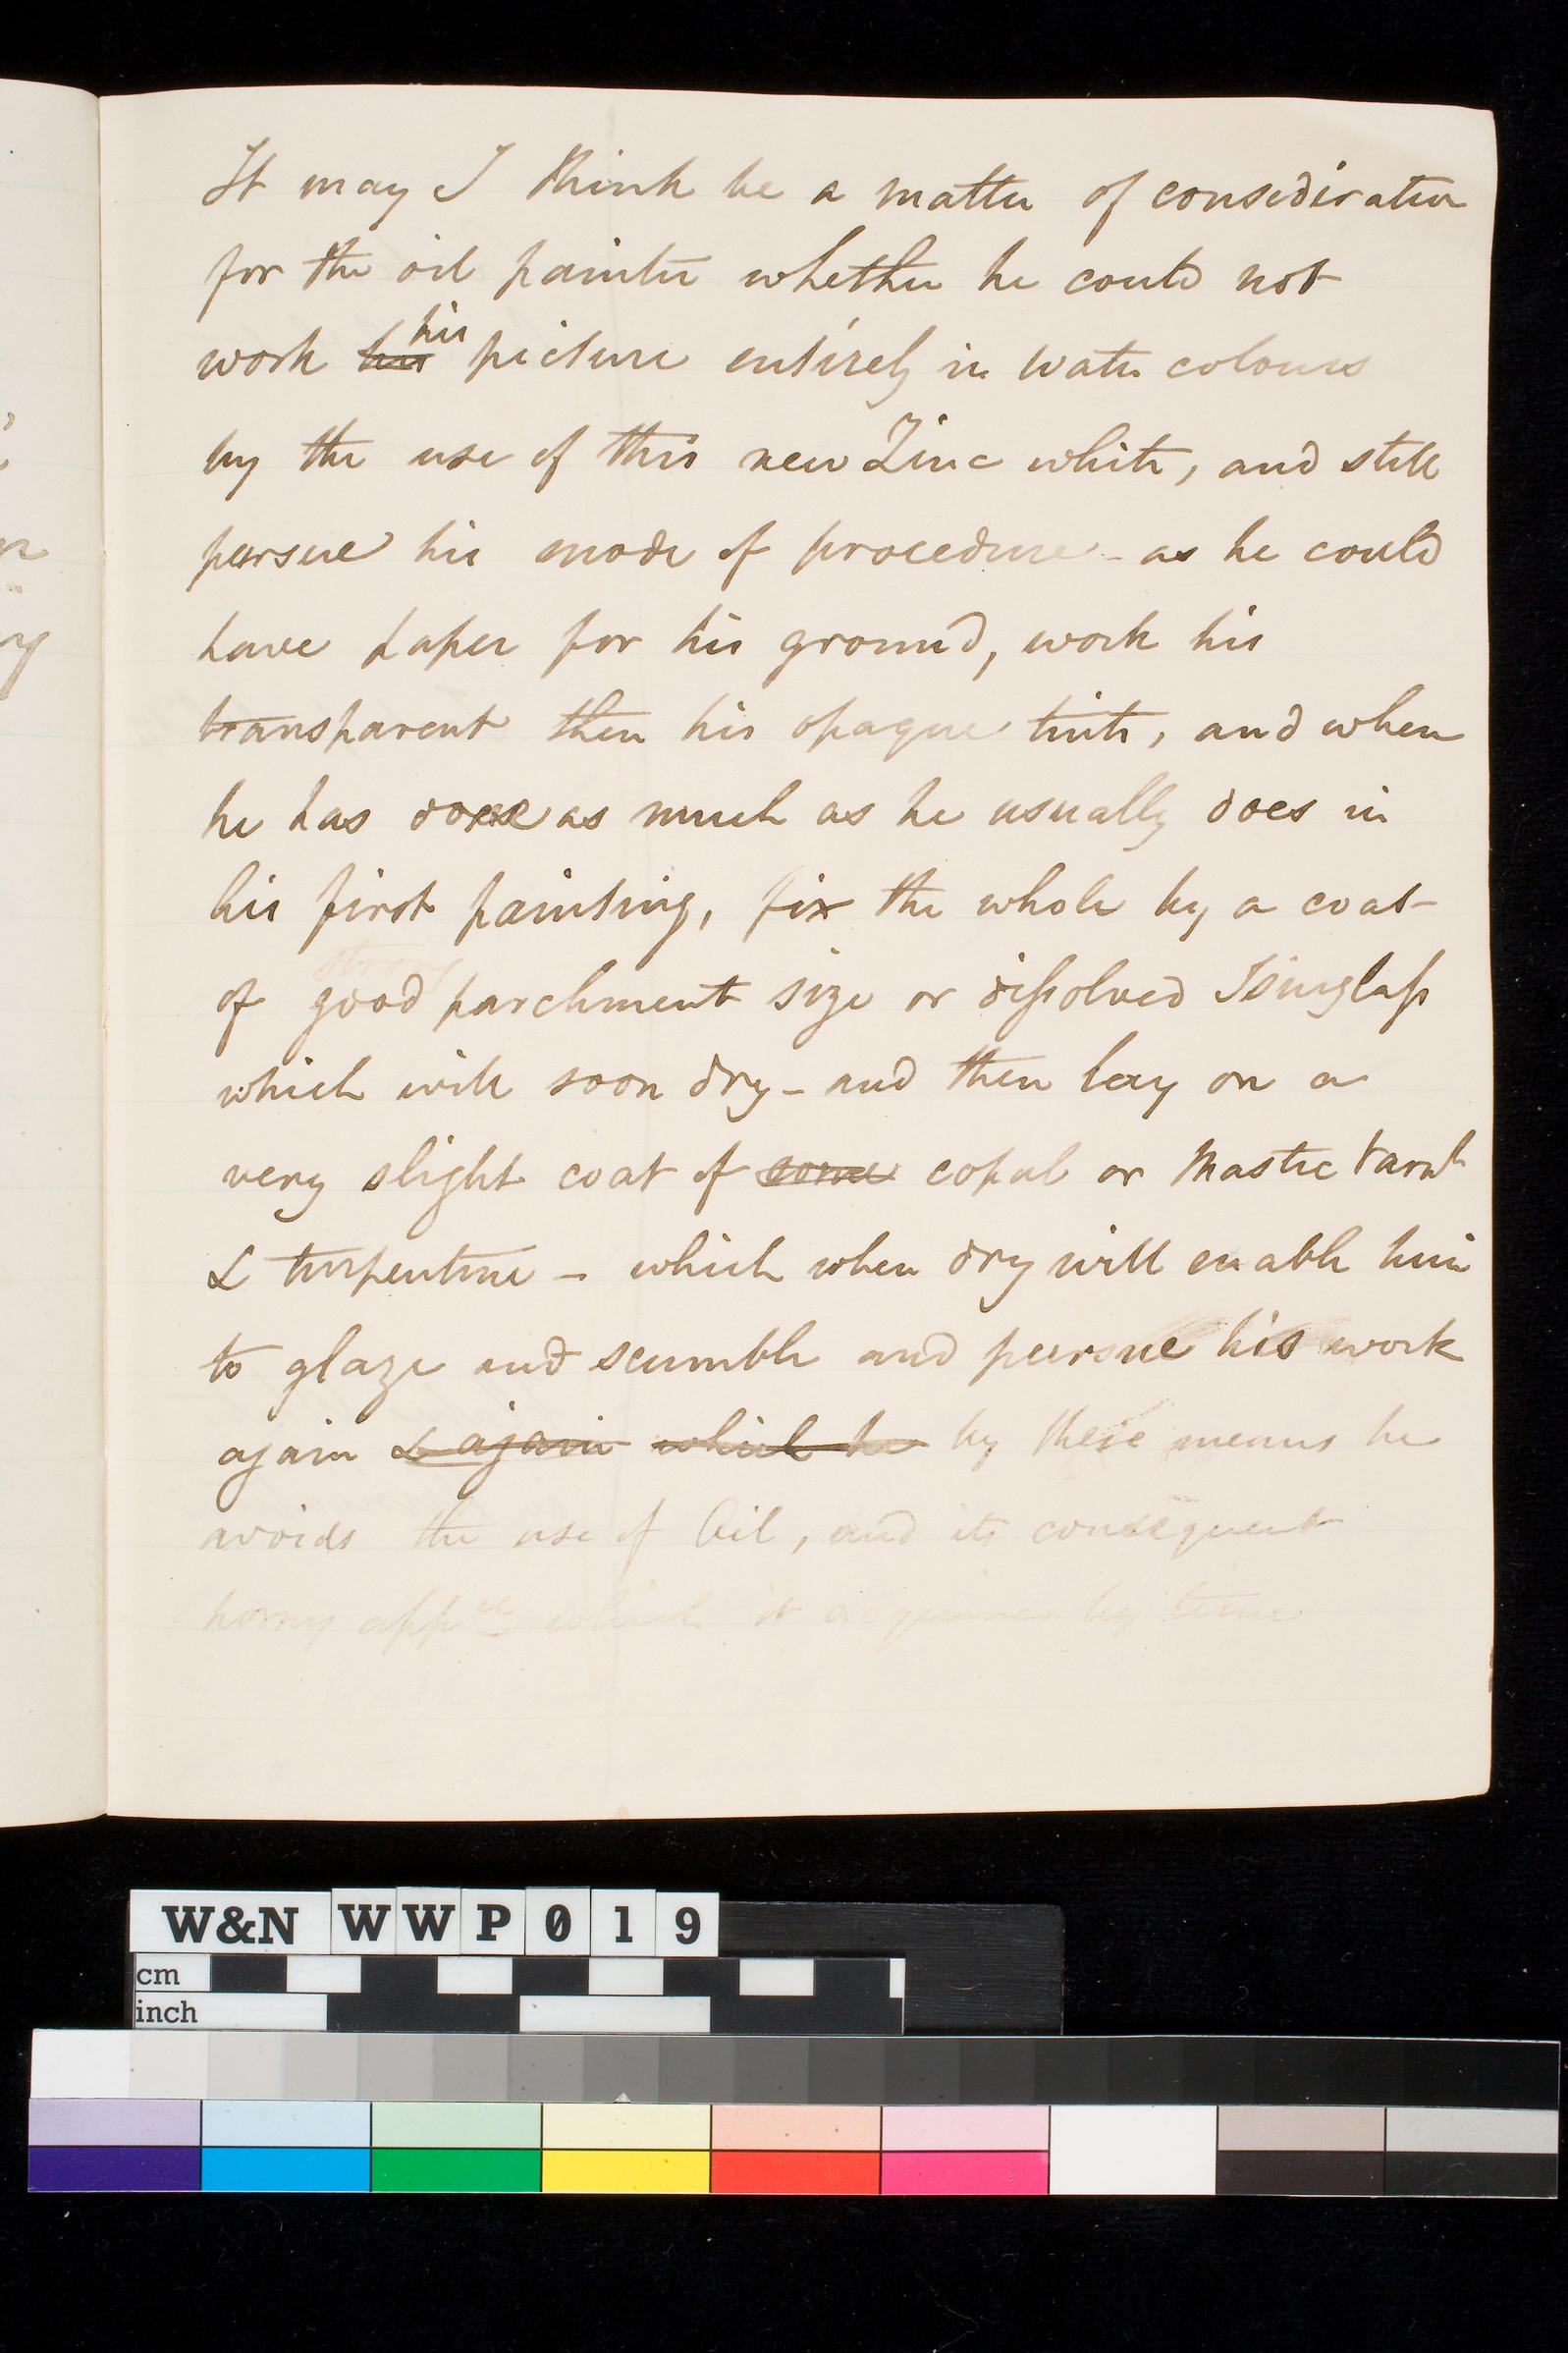 It may I think be a matter of consediration
for the oil painter whether he could not
work his his picture entirely in water colours
by the use of this new Zinc white, and still
pursue his mode of procedure - as he could
have paper for his ground, work his
transparent then his opaque tints, and when
he has done as much as he usually does in
his first painting, fix the whole by a coat
strong
of good parchment size or dissolved Isinglass
which will soon dry - and then lay on a
very slight coat of some copal or Mastic Varnh
& turpentine - which when dry will enable him
to glaze and scumble and pursue his work
again & again which he by these means he
avoids the use of Oil, and its consequent
horny appce which it acquires by time
W&N WWP019
cm
inch